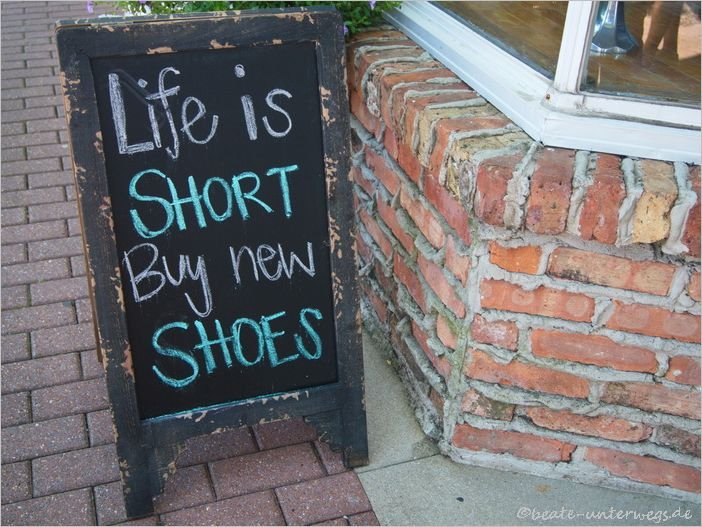 Life is
SHORT
Buy new
SHOES
©beate-unterwegs.de